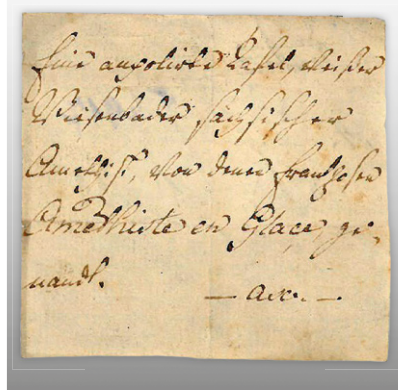 Eine anpolirte Tafel, weißer
Wiesenbader sächsischer
Amethist, von denen Franzosen
Amethiste en Glace, ge-
nandt.